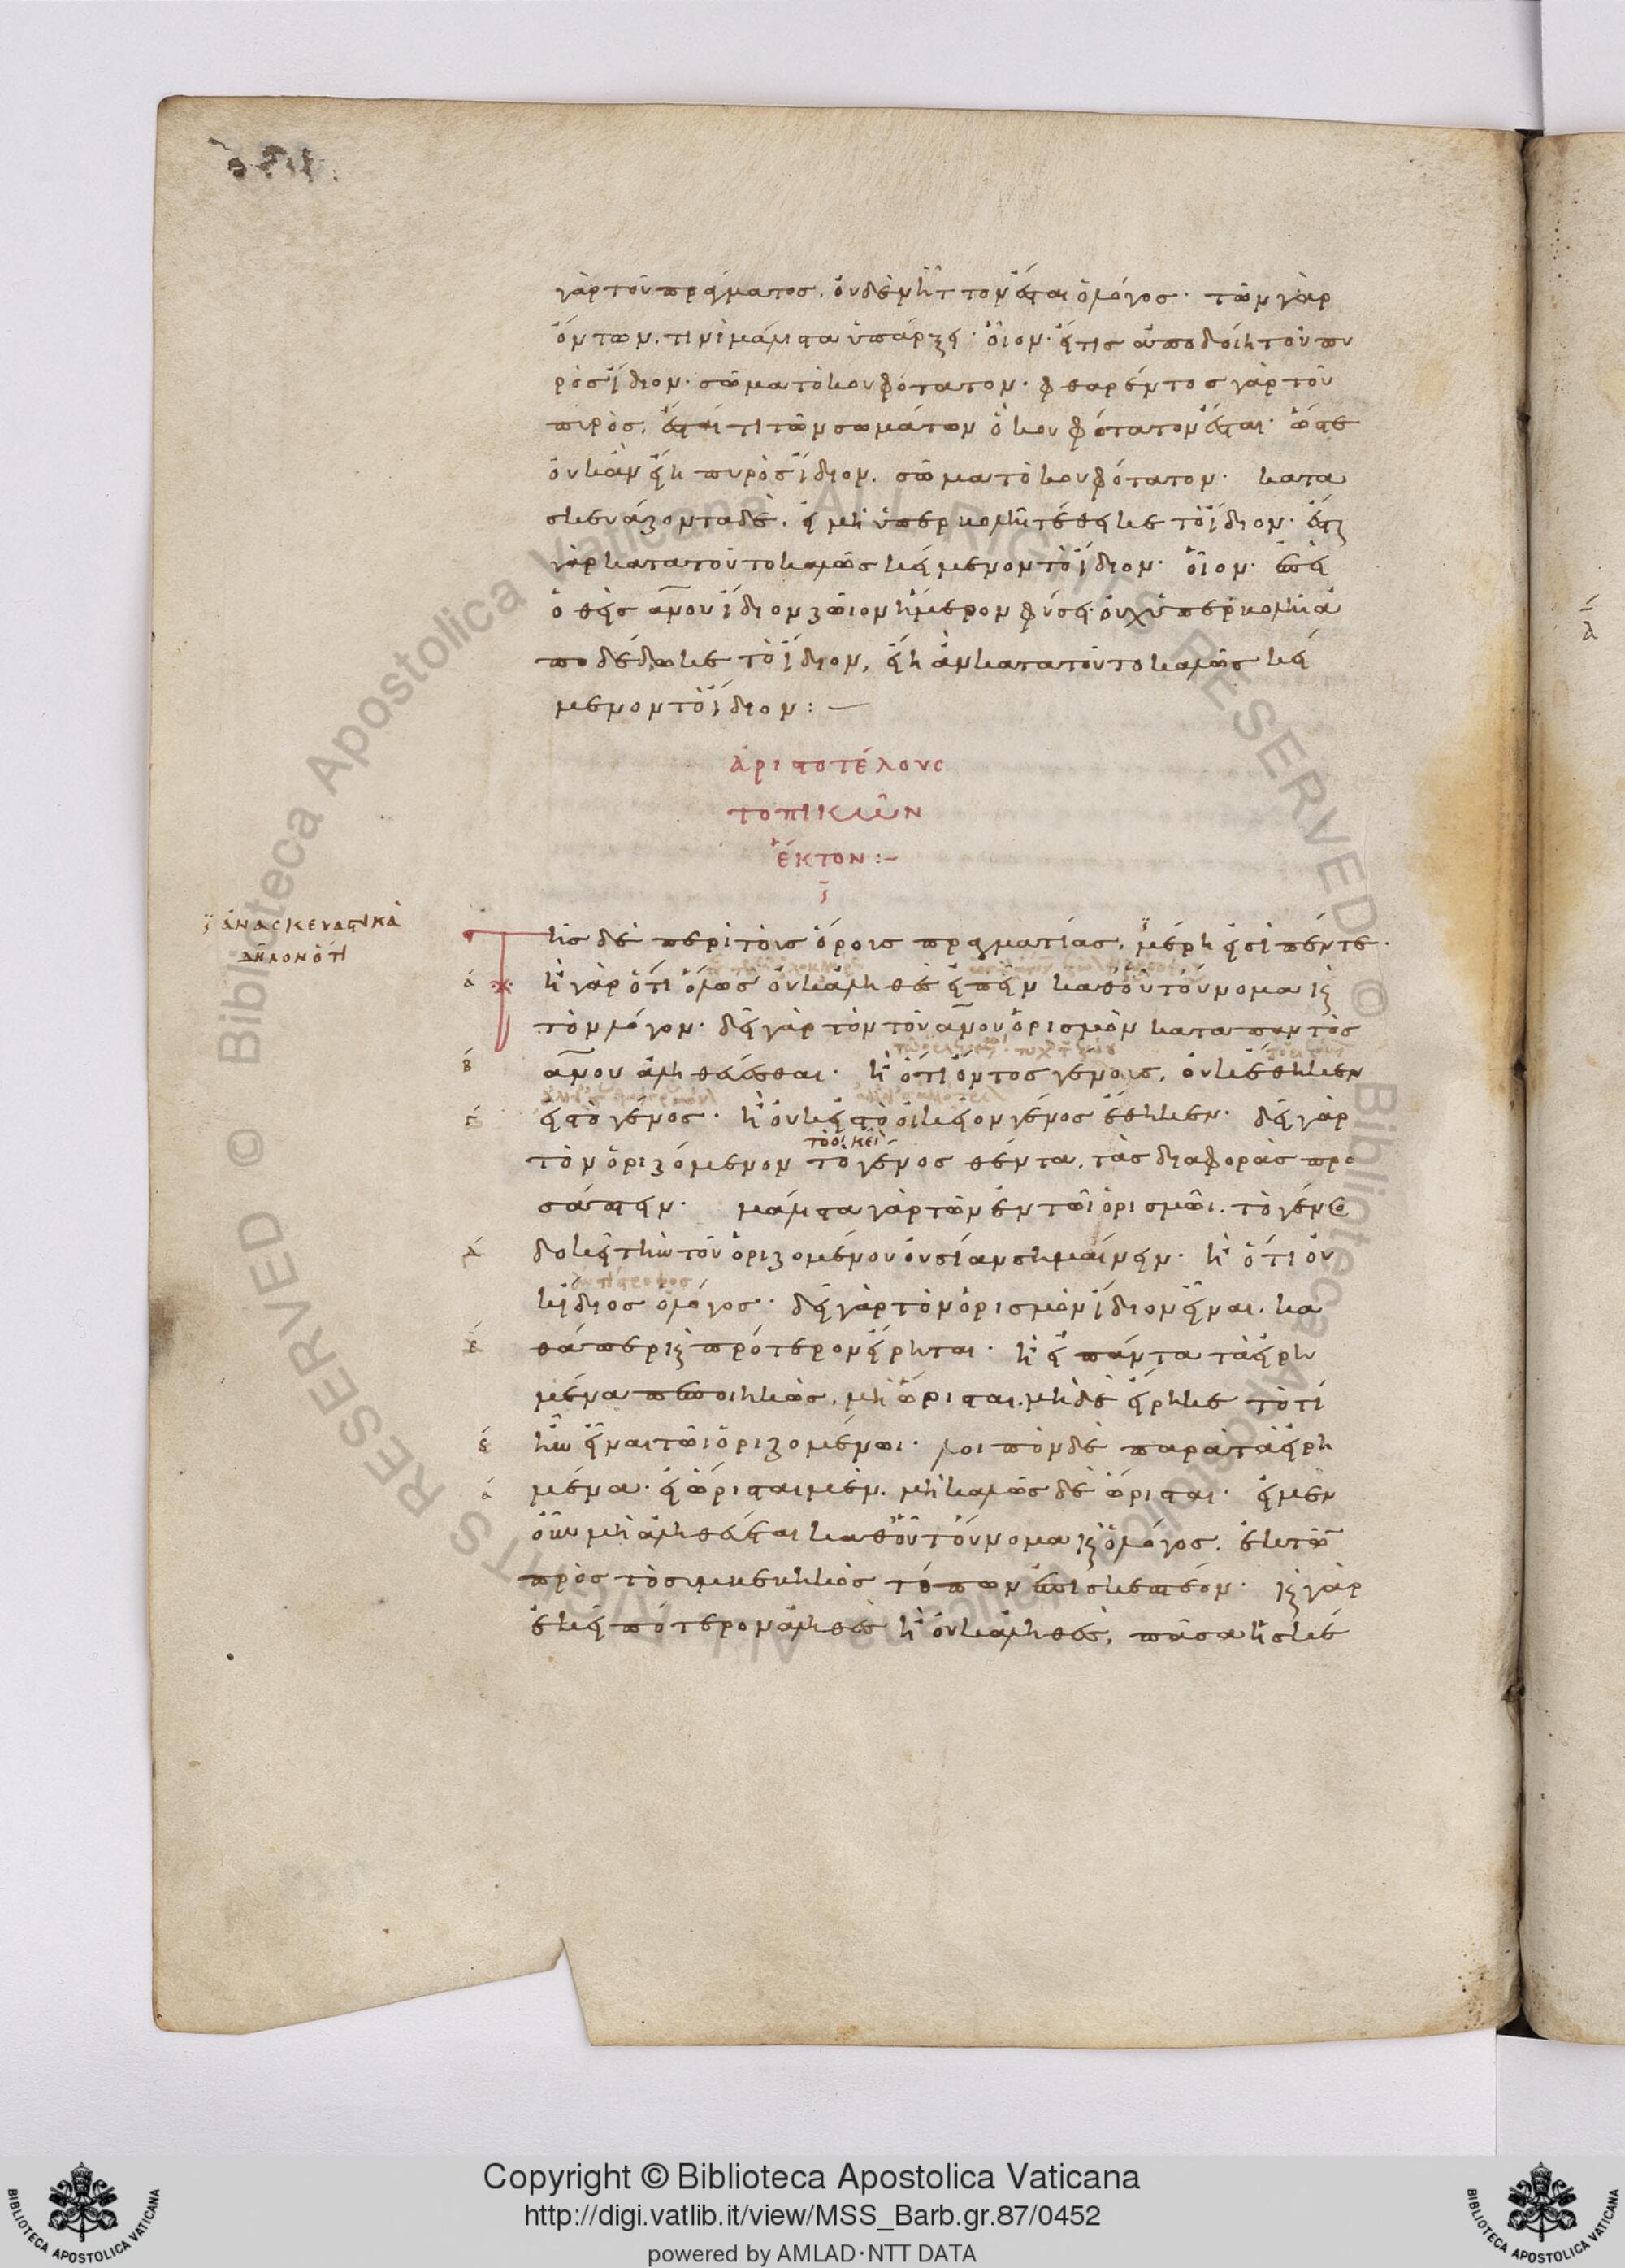 γὰρ τοῦ πράγματος, οὐδὲν ἧττον ἔσται ὁ λόγος· τῶν γὰρ
ὄντων, τινὶ μάλιστα ὑπάρξει· οἷον· εἴ τις ἀποδοίη τοῦ πυ
ρὸς ἴδιον· σῶμα τὸ κουφότατον· φθαρέντος γὰρ τοῦ
πυρὸς, ἔσται τι τῶν σωμάτων ὃ κουφότατον ἔσται· ὥστε
οὐκ ἂν εἴη πυρὸς ἴδιον, σῶμα τὸ κουφότατον· κατα
σκευάζοντα δὲ, εἰ μὴ ὑπερβολῆ τέθεικε τὸ ἴδιον· ἔσται
γὰρ κατα τοῦτο καλῶς κείμενον τὸ ἴδιον· οἷον· ἐπεὶ
ὁ θεὶς ἀνου ἴδιον ζῶιον ἥμερον φύσει· οὐχ ὑπερβολῆι ἀ
ποδέδωκε τὸ ἴδιον, εἴη ἂν κατα τοῦτο καλῶς κεί
μενον τὸ ἴδιον:—
ἀριστοτέλους
τοπικῶν
ἕκτον:–
ϛ
ἀνασκευαστικὰ
δηλονότι
Τῆς δὲ περὶ τοὺς ὅρους πραγματίας, μέρη εἰσὶ πέντε·
α ἢ γὰρ ὅτι ὅλως οὐκ ἀληθὲς εἰπεῖν καθ οὗ τοὔνομα καὶ
τὸν λόγον· δεῖ γὰρ τὸν τοῦ ἀνου ὁρισμὸν κατα παντὸς
β ἀνου ἀληθεύεσθαι· ἢ ὅτι ὄντος γένους, οὐκ ἔθηκεν
γ εἰς τὸ γένος· ἢ οὐκ εἰς τὸ οἰκεῖον γένος ἔθηκεν· δεῖ γὰρ
τὸ οἰκεῖ
τὸν ὁριζόμενον τὸ γένος θέντα, τὰς διαφορὰς προ
σάπτειν· μάλιστα γὰρ τῶν ἐν τῶι ὁρισμῶι, τὸ γένος
δ δοκεῖ τὴν τοῦ ὁριζομένου οὐσίαν σημαίνειν· ἢ ὅτι οὐ
κ ἴδιος ὁ λόγος· δεῖ γὰρ τὸν ὁρισμὸν ἴδιον εἶναι, κα
θάπερ καὶ πρότερον εἴρηται· ἢ εἰ πάντα τὰ εἰρη
μένα πεποιηκὼς, μὴ ὥρισται, μηδὲ εἴρηκε τὸ τί
ἦν εἶναι τῶι ὁριζομένωι· λοιπὸν δὲ παρὰ τὰ εἰρη
μένα· εἰ ὥρισται μὲν, μὴ καλῶς δὲ ὥρισται· εἰ μὲν
οὖν μὴ ἀληθεύεται καθ οὗ τοὔνομα καὶ ὁ λόγος, ἐκ τῶν
πρὸς τὸ συμβεβηκὸς τόπων ἐπισκεπτέον· καὶ γὰρ
ἐκεῖ πότερον ἀληθὲς ἢ οὐκ ἀληθὲς, πᾶσα ἡ σκέ
Copyright © Biblioteca Apostolica Vaticana
http://digi.vatlib.it/view/MSS_Barb.gr.87/0452
powered by AMLAD·NTT DATA